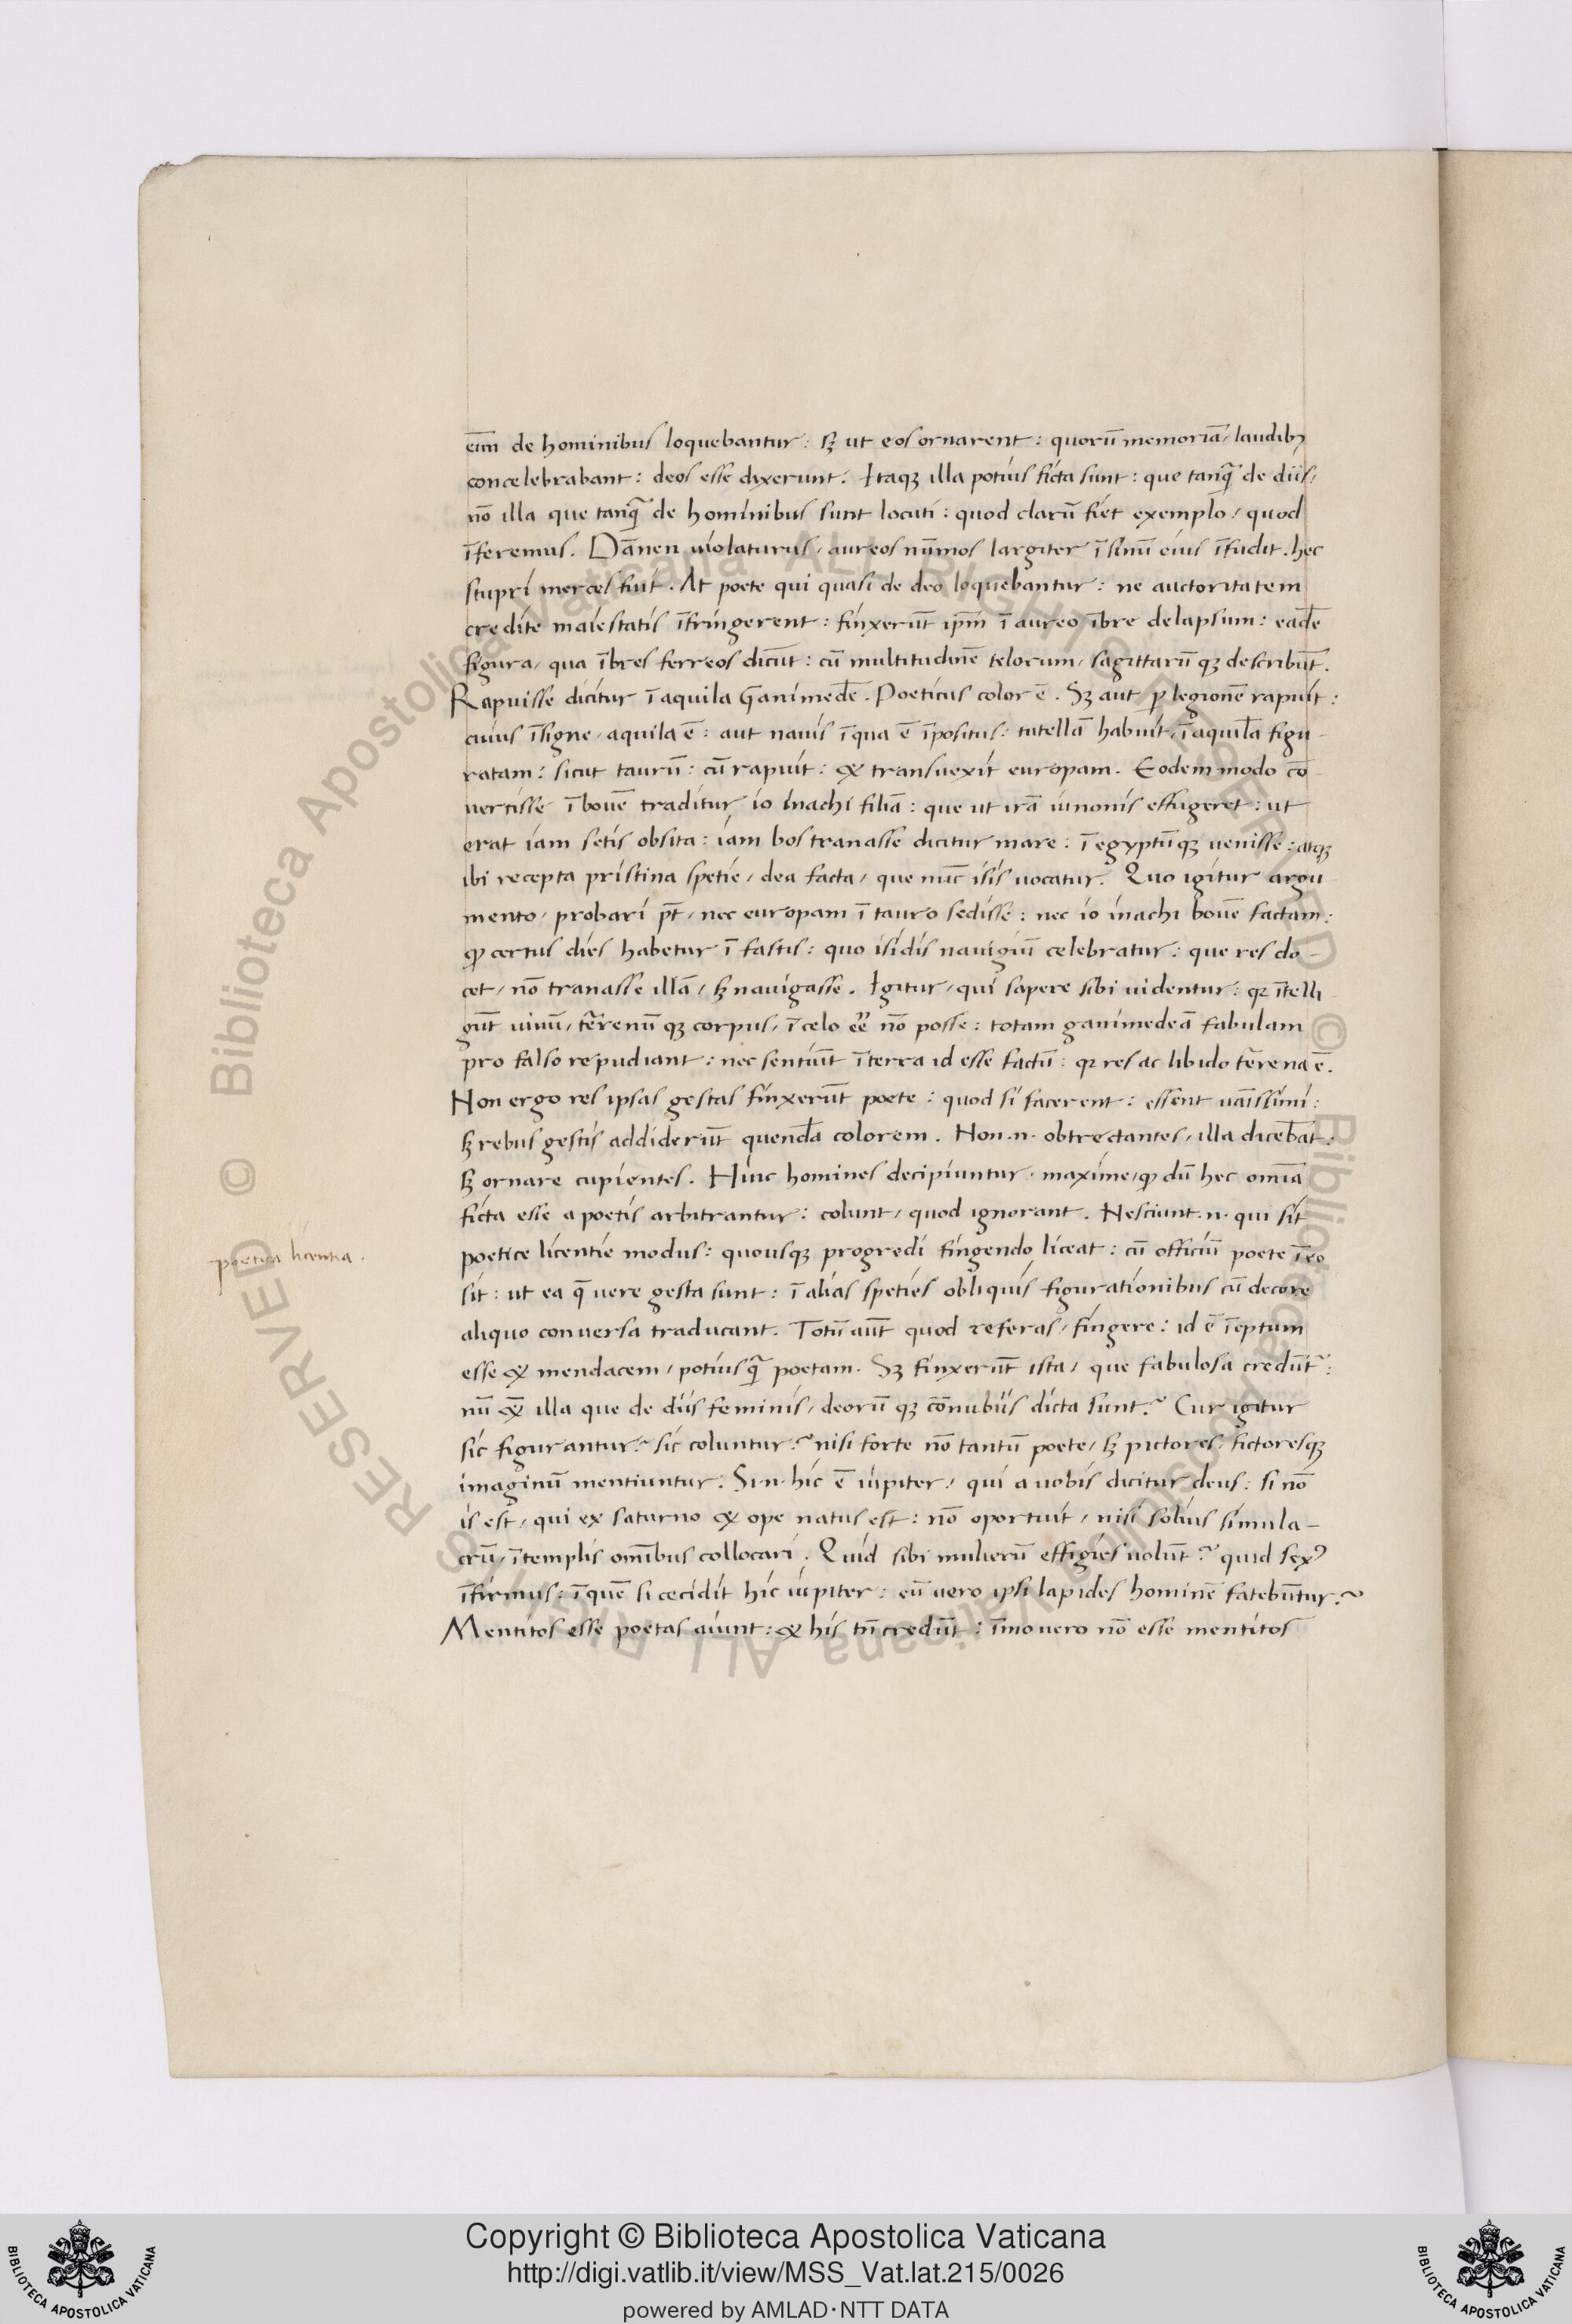 eim̄ de hominibus loquebantur: sꝫ ut eos ornarent: quorū memoriā, laudibꝫ
concelebrabant: deos esse dixerunt. Itaqꝫ illa potius ficta sunt: que tanq̃ de diis,
nō illa que tanq̃ de hominibus sunt locuti: quod clarū fiet exemplo, quod
īferemus. Dānen uiolaturus, aureos nūmos largiter ī sinū eius īfudit. hec
stupri merces fuit. At poete qui quasi de deo loquebantur: ne auctoritatem
credite maiestatis īfringerent: finxerūt ip̄m ī aureo ībre delapsum: eadē
figura, qua ībres ferreos dicūt: cū multitudinē telorum, sagittarū qꝫ describūt.
Rapuisse dicitur ī aquila Ganimedē. Poeticus color ē. Sꝫ aut ꝑ legionē rapuit:
cuius īsigne, aquila ē: aut nauis ī qua ē īpositus: tutellā habuit, ī aquilā figu-
ratam: sicut taurū: cū rapuit: & transuexit europam. Eodem modo cō-
uertisse ī bouē traditur io inachi filiā: que ut irā iunonis effugeret: ut
erat iam setis obsita: iam bos tranasse dicitur mare: ī egyptūqꝫ uenisse: atqꝫ
ibi recepta pristina spetie, dea facta, que nūc isis uocatur. Quo igitur argu-
mento, probari pt̄, nec europam ī tauro sedisse: nec io inachi bouē factam:
ꝙ certus dies habetur ī fastis: quo isidis nauigiū celebratur: que res do-
cet, nō tranasse illā, sꝫ nauigasse. Igitur, qui sapere sibi uidentur: qꝛ ītelli-
gūt uiuū, tērenū qꝫ corpus, ī celo ēe nō posse: totam ganimedeā fabulam
pro falso repudiant: nec sentiūt ī terra id esse factū: qꝛ res ac libido tērena ē.
Non ergo res ipsas gestas finxerūt poete: quod si facerent: essent uāissimi:
sꝫ rebus gestis addiderūt quendā colorem. Non .n. obtrectantes, illa dicebāt:
sꝫ ornare cupientes. Hinc homines decipiuntur, maxime, ꝙ dū hec omīa
ficta esse a poetis arbitrantur: colunt, quod ignorant. Nesciunt .n. qui sit
poetice licentie modus: quousqꝫ progredi fingendo liceat: cū officiū poete ī eo
sit: ut ea q̄ uere gesta sunt: ī alias speties obliquis figurationibus cū decore
aliquo conuersa traducant. Totū aūt quod referas, fingere: id ē īeptum
esse & mendacem, potiusq̃ poetam. Sꝫ finxerūt ista, que fabulosa credūt᷑:
nū &̄ illa que de diis feminis, deorū qꝫ cōnubiis dicta sunt? Cur igitur
sic figurantur? sic coluntur? nisi forte nō tantū poete, sꝫ pictores, fictoresqꝫ
imaginū mentiuntur. Si .n. hic ē iupiter, qui a uobis dicitur deus: si nō
is est, qui ex saturno & ope natus est: nō oportuit, nisi solius simula-
crū, ī templis omībus collocari. Quid sibi mulierū effigies uolūt? quid sexꝰ
īfirmus: ī quē si cecidit hic iupiter: eū uero ipsi lapides hominē fatebūtur?
Mentitos esse poetas aiunt: & his tn̄ credūt: īmo uero nō esse mentitos
poetica licentia.
Copyright © Biblioteca Apostolica Vaticana
http://digi.vatlib.it/view/MSS_Vat.lat.215/0026
powered by AMLAD·NTT DATA